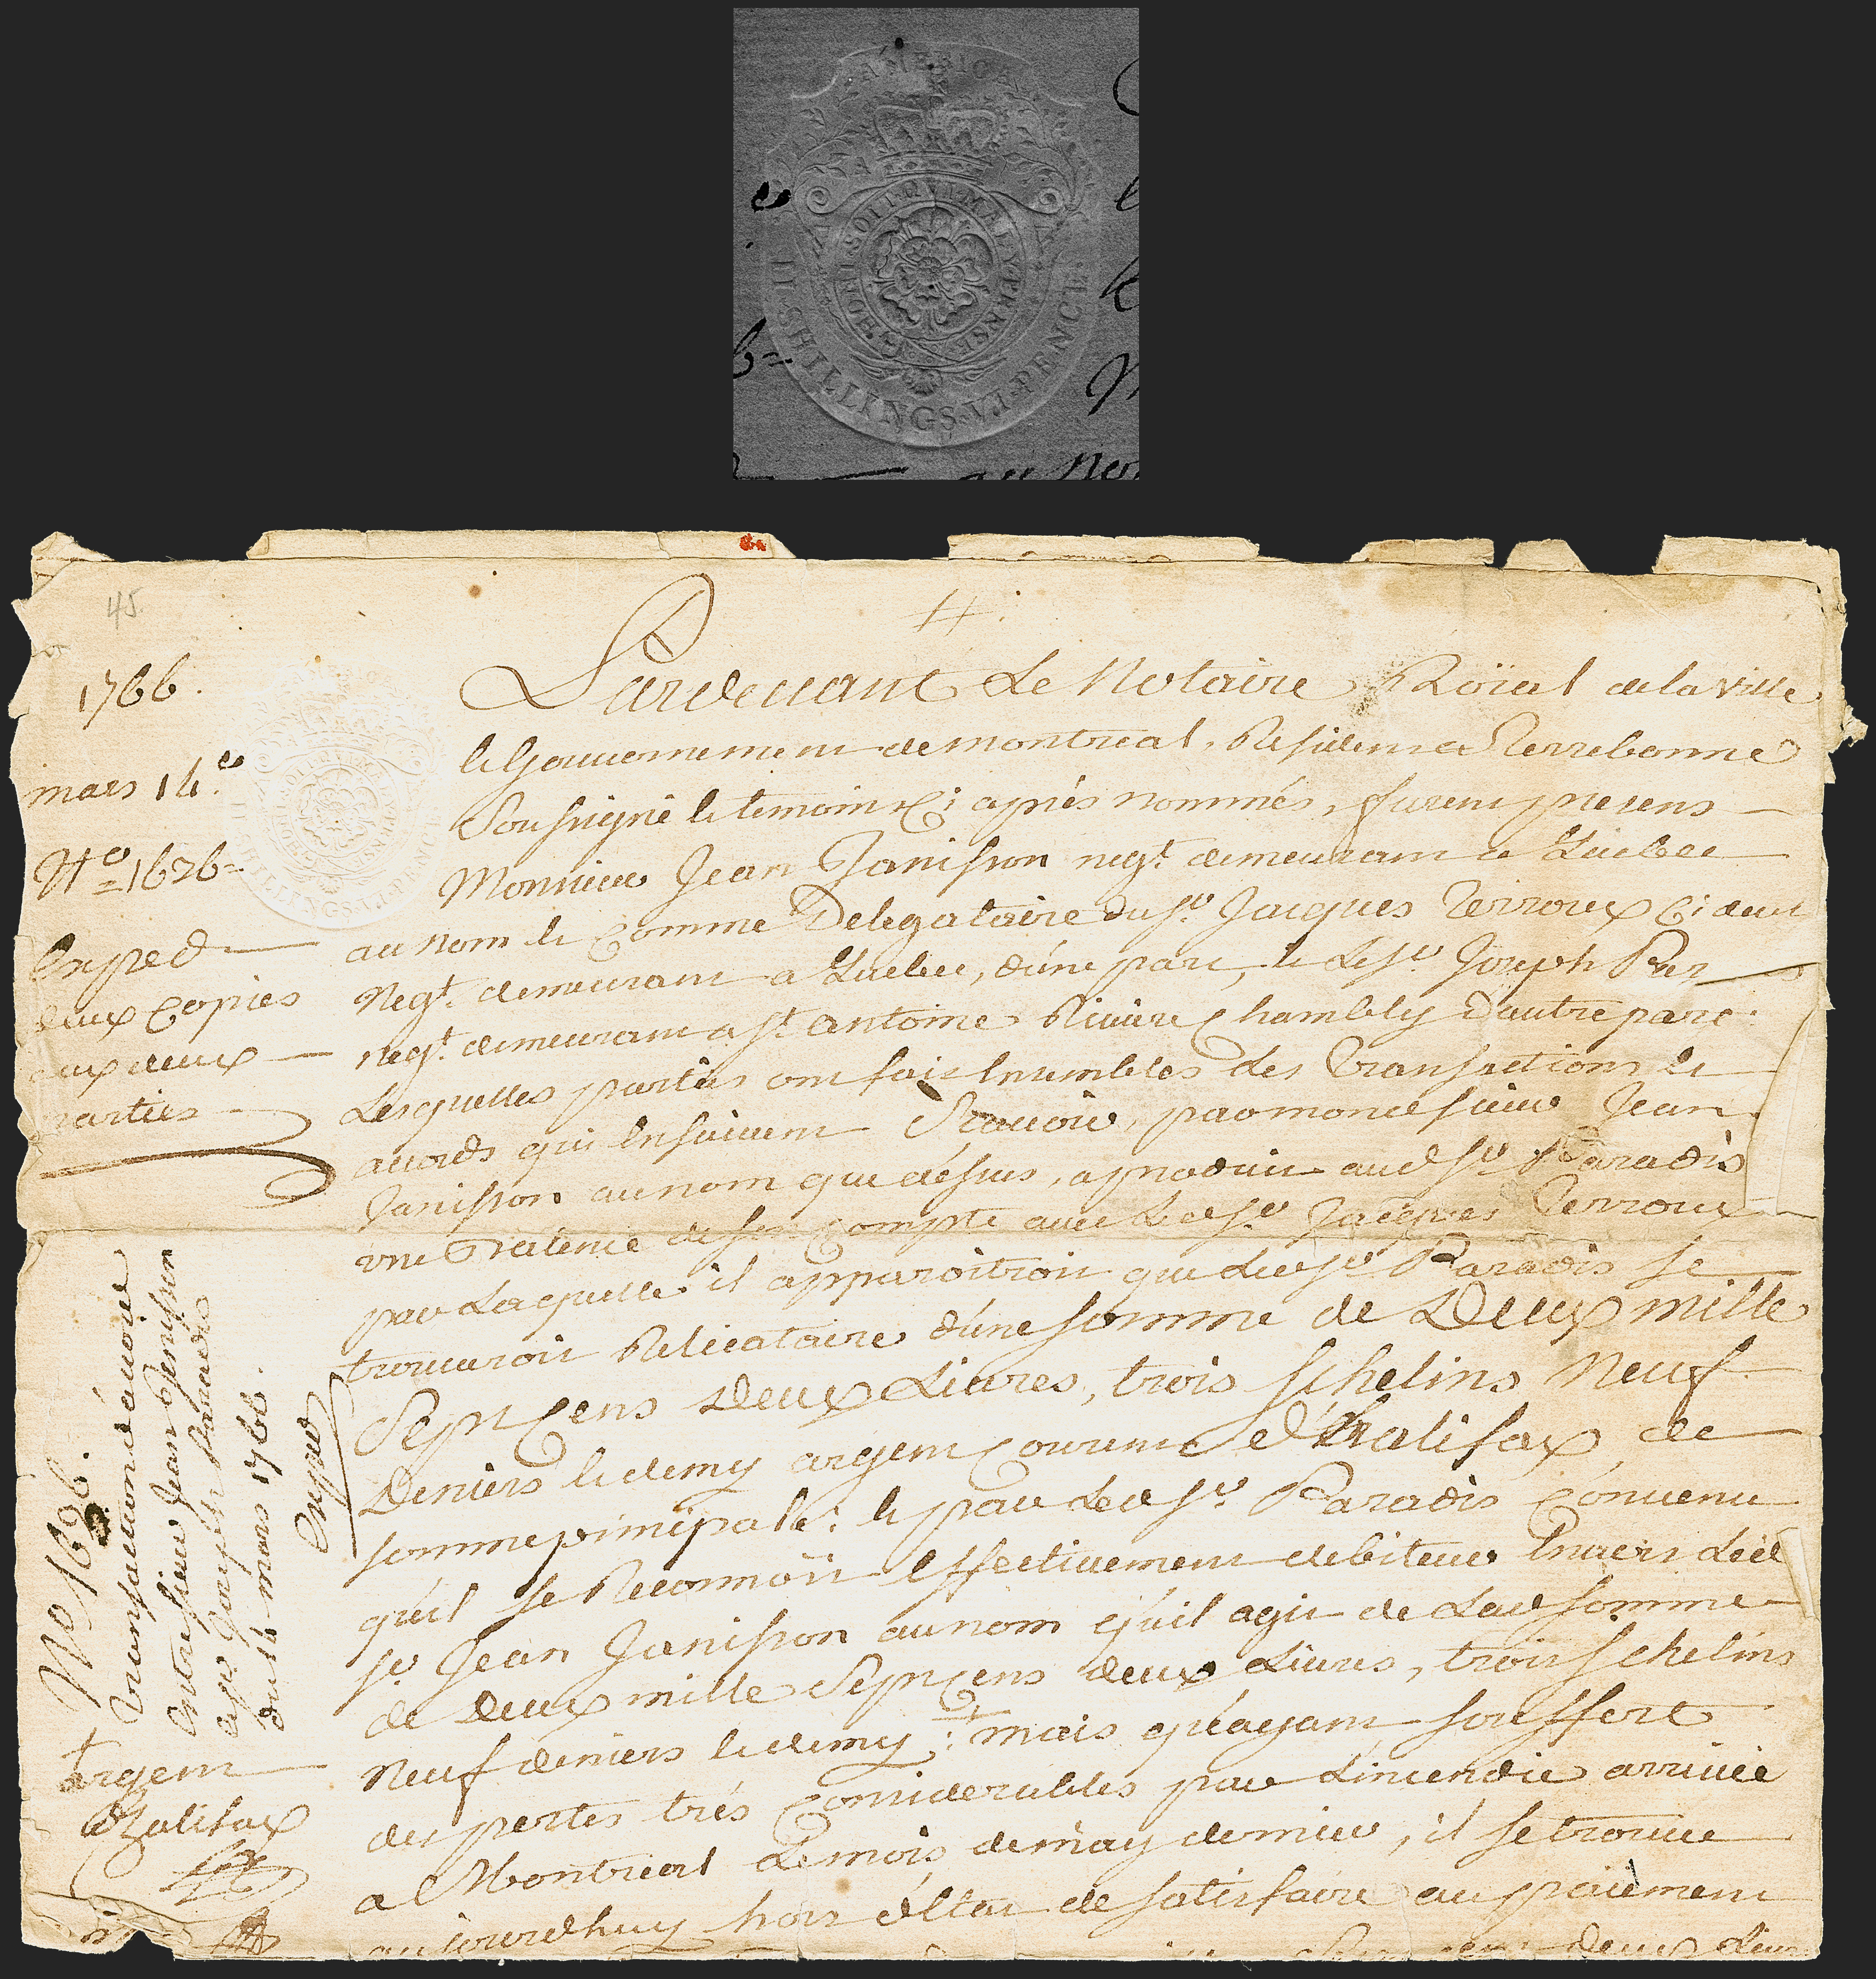 AMERICA
HONI·SOIT·QUI·MAL·Y·PENSE
II·SHILLINGS·VI·PENCE
45
1766.
mars 14.
N.o 1626
Exped
deux copies
aux deux
parties
Pardevant Le Notaire Roïal de la ville
le Gouvernement de montreal, Residem a Terrebonne
Soussigné le temoins Ci aprés nommés, furem presens
Monsieur Jean Janisson negt. demeuram a Quebec
au nom le Comme Delegataire du Sr. Jacques Terroux Ci devt
Negt. demeuram a Quebec, d'une part, le Le Sr. Joseph Par
negt. demeuram a St. antoine Riviere Chambly D'autre part.
Lesquelles parties om fait Ensembles les Transactions le
accords qui Ensuivem Scavoir, par mondt sieur Jean
Janisson au nom que désus, a produit aud Sr. Paradis
une Balence de son Compte avec Led Sr. Jacques Terroux
par Laquelle il apparoitroit que Led Sr. Paradis se
trouveroit Relicataire d'une somme de Deux mille
Sept Cens Deux Livres, trois schelins Neuf
Deniers le demy argem Courem d'halifax, de
somme principalle: le par Led Sr. Paradis Convenu
qu'il se Reconnoit Effectivement debiteur Envers Led
Sr. Jean Janisson au nom qu'il agit de Lad somme
de Deux mille Sept Cens deux Livres, trois schelins
Neuf deniers le demy; mais q'éayam souffert
des pertes trés Considerables par L'incendie arrivée
a Montreal Le mois de may dernier, il se trouve
aujourdhuy hors d'Etat de satisfaire au paiement
deux Livr
No 1626.
Transaction d'accord
Entre sieur Jean Jenisson
Joseph Paradis
Du 14 mars 1766.
Expiée
argem
d'halifax